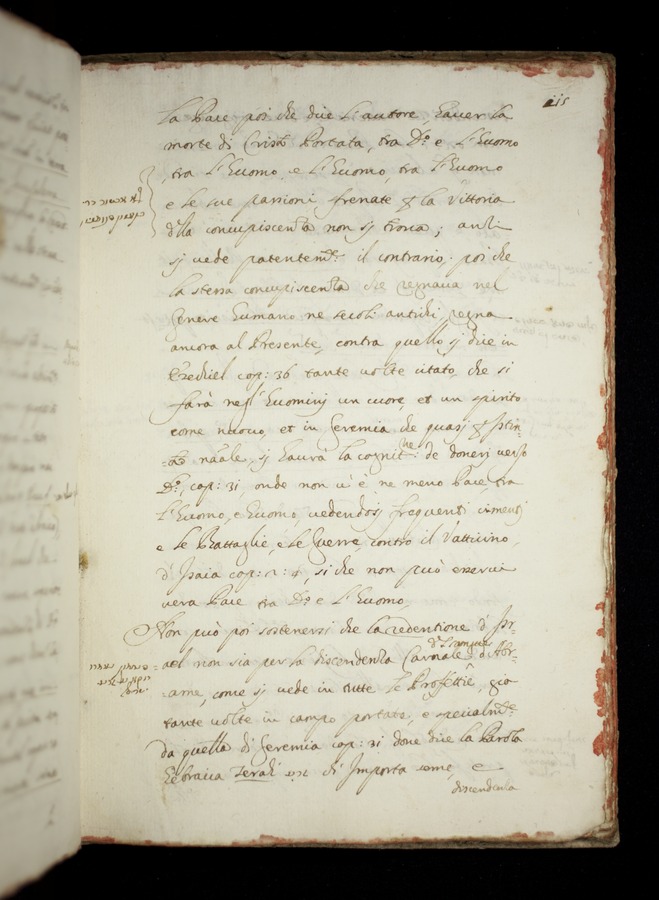 115
la Pace poi che dice l'autore, haver la
morte di Cristo Portata, tra D.o e l'Huomo
tra l'Huomo, e l'Huomo, tra l'Huomo
e le sue passioni frenate & la Vittoria
d'lla concupiscenza non si trova; anzi
si vede patentem.te il contrario, poi che
la stessa concupiscenza che regnava nel
Genere humano ne secoli antichi, regna
ancora al Presente, contra quello si dice in
Ezechiel cap: 36 tante volte citato, che si
farà negl'Huomini un cuore, et un spirito
come nuovo, et in Geremia che quasi & Istin-
=to nāale, si haurà la cognit.ne de doveri verso
D.o, cap: 31, onde non v'è ne meno Pace, tra
l'Huomo, e Huomo, vedendosi frequenti
e le Battaglie, e le Guerre, contro il Vatticino,
d'Isaia cap: 2: 4, si che non può esservi
vera Pace tra D.o e l'Huomo,
Non può poi sostenersi che la redentione d'Isr-
=ael non sia per la discendenza Carnale, d'l sangue d'Abr-
=ame, come si vede in tutte le Profettie, gia
tante volte in campo portate, e specialm.te
da quella di Geremia cap: 31 dove dice la Parola
Hebraica Zerah זרע ch'Importa seme, e
discendenza